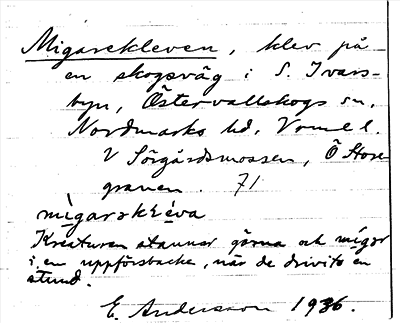 Migarekleven, klev på
en skogsväg i S. Ivars-
byn, Östervallskogs sn,
Nordmarks hd, Vrml l.
V Sörgårdsmossen, Ö Store
granen. 71
mìgarskléva
Kreaturen stannar gärna och mígar
i en uppförsbacke, när de drivits en
stund.
E. Andersson 1936.